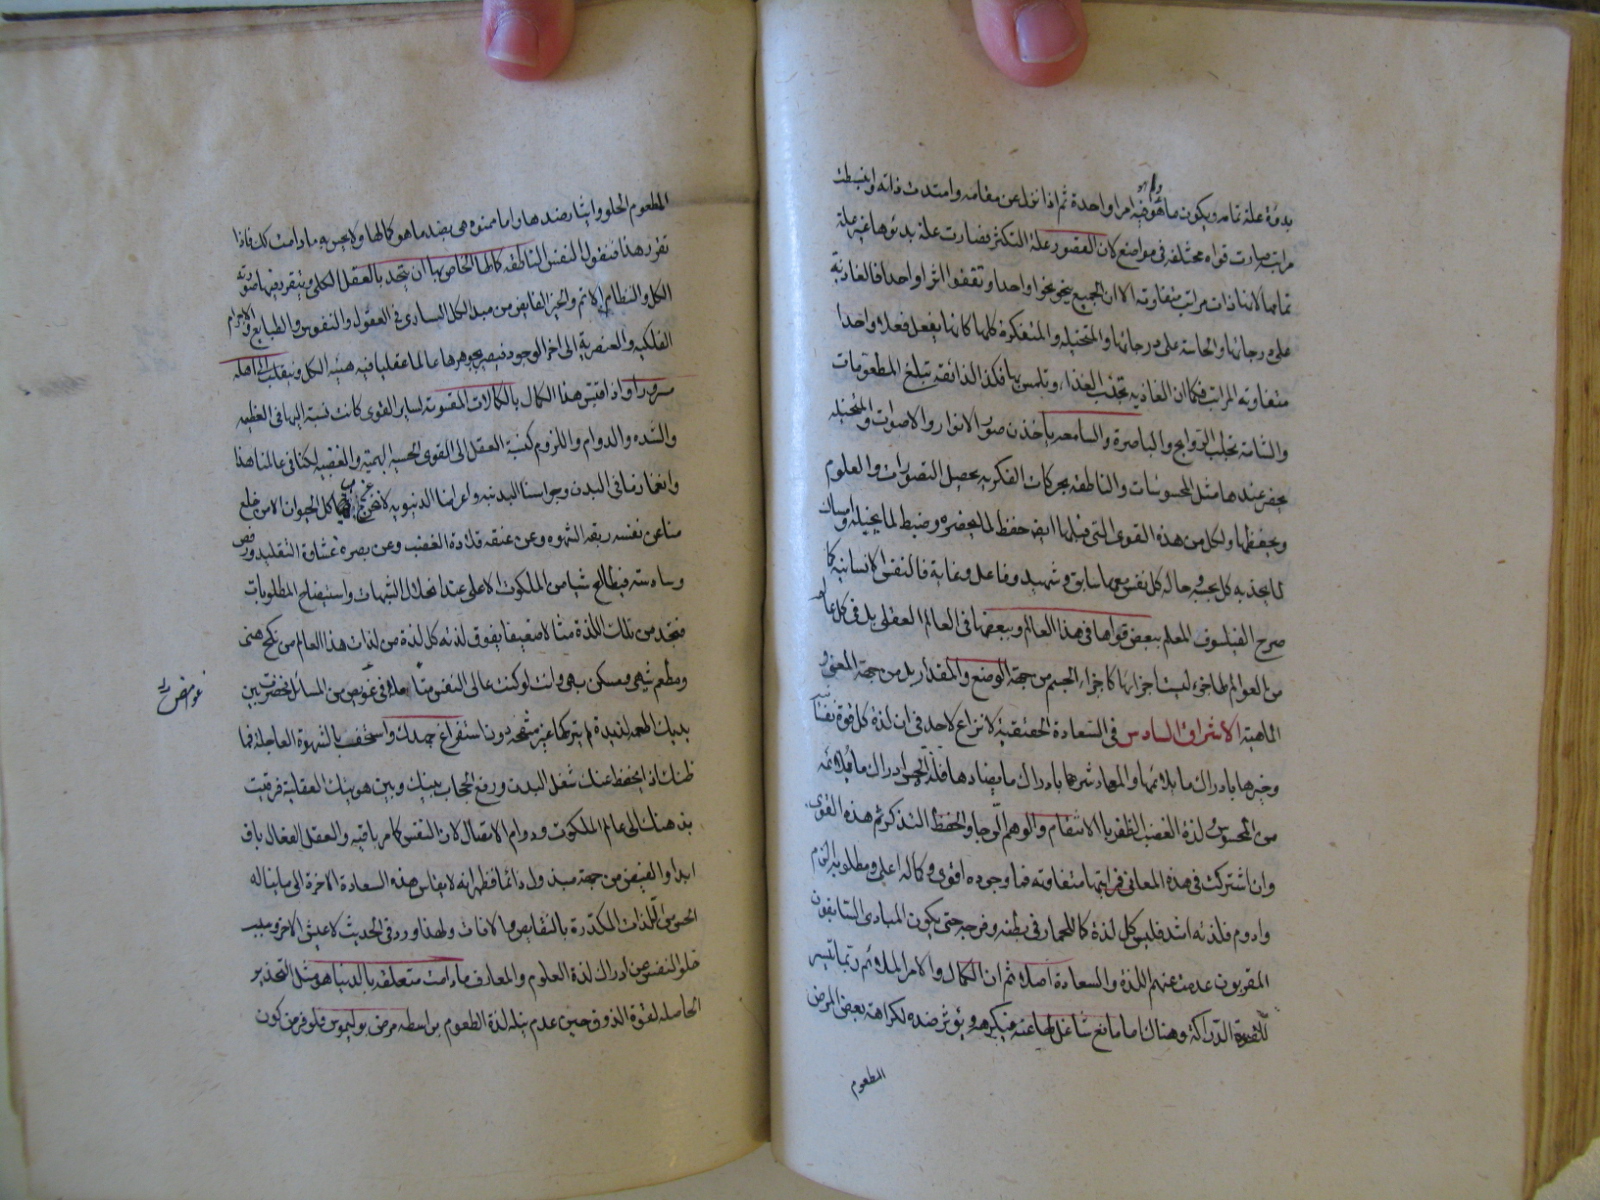 بدوه علة تمامه ويكون ما هو فيه امرا واحدة ثم اذا نزل عن مقامه وامتدت ذاته وانبسطت
مراتبه صارت قواه مختلفة في مواضع كان القصور علة التكثر فصارت علة بدئوها غير علة
تمامها لانها ذات مراتب متفاوته الا ان الجميع ينحو نحوا واحدا وتقفوا اثرا واحدا فالغاذية
على درجاتها والحاسة على درجاتها والمتخيلة والمتفكرة كلها كانها يفعل فعلا واحدا
متفاوته المراتب فكما ان الغاذيه تجذب الغذاء وتلمس بها فكذا الذائقة تبلغ المطعومات
والشامة تجلب الروايح والباصرة والسامعه يأخذن صور الانوار والاصوات والمتخيلة
يحضر عندها مثل المحسوسات والناطقة بحركات الفكريه يحصل التصورات والعلوم
ويحفظها ولكل من هذه القوى التي قبلها ايضا حفظ لما يحضره وضبط لما يتخيله وامساك
لما يجذبه كل بحسبه وحاله كل نفس معها سابق وشهيد وفاعل وغاية فالنفس الانسانية كما
صرح الفيلسوف المعلم ببعض قواها في هذا العالم وببعضها في العالم العقلي بل في كل عالم
من العوالم لها جزء ليست اجزائها كاجزاء الجسم من جهة الوضع والمقدار بل من جهة المعنى و
الماهية الاشراق السادس في السعادة الحقيقية لا نزاع لاحد في ان لذة كل قوة نفسانية
وخيرها بادراك ما يلائمها والمها وشرها بادراك ما يضادها فلذة الحس ادراك ما يلائمه
من المحسوس ولذة الغضب الظفر بالانتقام والوهم الرجا والحفظ التذكر ثم هذه القوى
وان اشتركت في هذه المعاني فمراتبها متفاوته فما وجوده اقوى وكماله اعلى ومطلوبه الزم
وادوم فلذته اشد فليس كل لذة كما للحمار في بطنه وفرجه حتى يكون المبادي السابقون
المقربون عدمت عنهم اللذة والسعادة اصلا ثم ان الكمال والامر الملائم ربما تيسر
للقوة الدراكة وهناك اما مانع شاغل لها عنه فيكرهه ويؤثر ضده لكراهة بعض المرضى
المطعوم
المطعوم الحلو وايثار ضدها واما ممنوه هى بضد ما هو كمالها ولا يحس به ما دامت كك فاذا
تقرر هذا فنقول النفس الناطقه كمالها الخاص بها ان يتحد بالعقل الكلي ويتقرر فيها صورة
الكل والنظام الاتم والخير الفايض من مبدء الكل الساري في العقول والنفوس والطبايع والاجرام
الفلكيه والعنصرية الى اخر الوجود فيصير بجوهرها عالما عقليا فيه هيئة الكل وينقلب الى اهله
مسرورا واذا قيس هذا الكمال بالكمالات المعشوقه لساير القوى كانت نسبته اليها في العظمه
والشده والدوام واللزوم كنسبة العقل الى القوى الحسيه البهيميه والغضبيه لكنا في عالمنا هذا
وانغمارنا في البدن وحواسنا البدنيه واغراضنا الدنيويه لا نحن كل الحنوان الا من خلع
منا عن نفسه ربقه الشهوه وعن عنقه قلادة الغضب وعن بصره غشاوة التقليد ورفض
وساوسه فيطالع شيأ من الملكوت الاعلى عند انحلال الشبهات واستيضاح المطلوبات
فيجد من تلك اللذة مثالا ضعيفا يفوق لذته كل لذة من لذات هذا العالم من نكح هنى
ومطعم شهي ومسكن بهي وانت لو كنت عالى النفس متأملا في غويص من المسائل فحضرت بين
غوامض
يديك اطعمه لذيدة لم يتركها غير منقحه دون استفراغ جهدك واستخف بالشهوة العاجلة فما
ظنك اذا انحفظ عنك شغل البدن ورفع الحجاب بينك وبين هويتك العقلية فرقيت
بذهنك الى عالم الملكوت ودوام الاتصال لان النفس كما مر باقيه والعقل الفعال باق
ابدا والفيض من جهته مبذول دائما فظهر انه لا يقاس هذه السعادة الاخرة الى ما يناله
الحس من اللذات المكدرة بالنقايص والافات ولهذا ورد في الحديث لا عيش الا الاخرة وسبب
خلو النفس عن ادراك لذة العلوم والمعارف ما دامت متعلقه بالدنيا هو مثل التخدير
الحاصله لقوة الذوق حين عدم نيله لذة الطعوم بواسطه مرض بوليموس فلو فرض كون